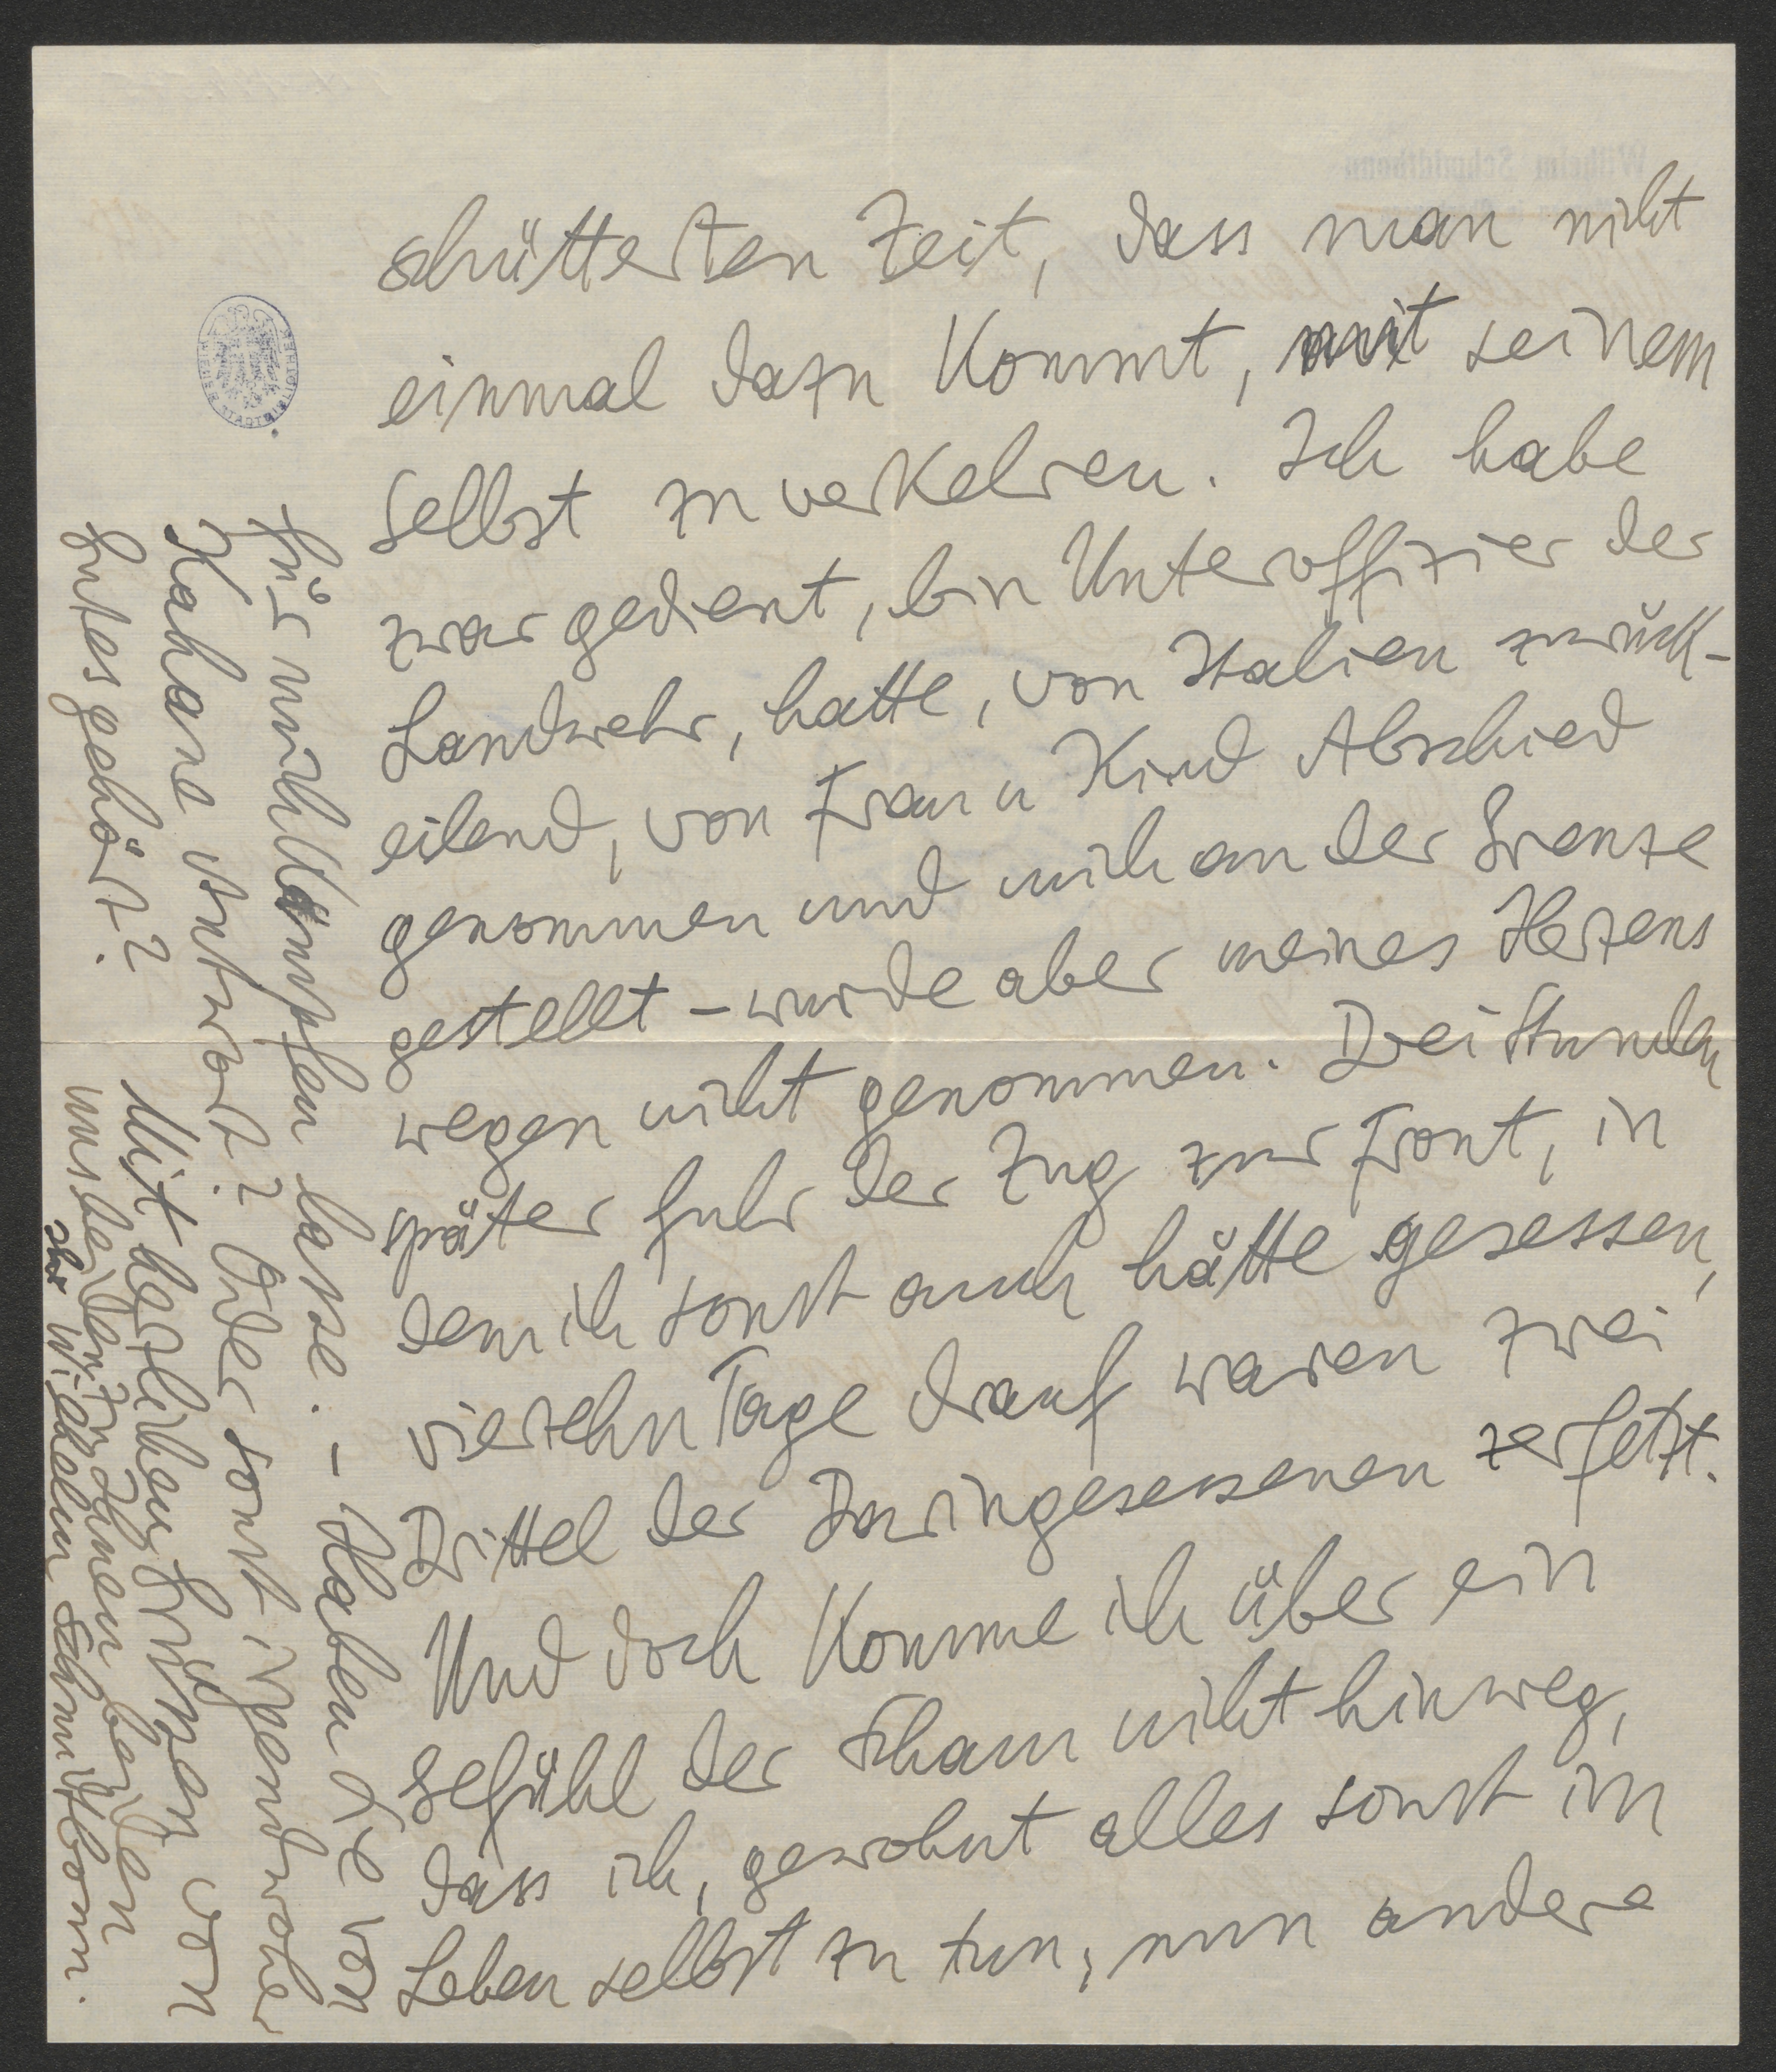 schütterten Zeit, dass man nicht
einmal dazu kommt, mit seinem
Selbst zu verkehren. Ich habe
zwar gedient, bin Unteroffizier der
Landwehr, hatte, von Italien zurück-
eilend, von Frau u Kind Abschied
genommen und mich an der Grenze
gestellt – wurde aber meines Herzens
wegen nicht genommen. Drei Stunden
später fuhr der Zug zur Front, in
dem ich sonst auch hätte gesessen,
vierzehn Tage drauf waren zwei
Drittel der Daringesessenen zerfetzt.
Und doch komme ich über ein
Gefühl der Scham nicht hinweg,
dass ich, gewohnt alles sonst im
Leben selbst zu tun, nun andere
für mich kämpfen lasse. – Haben Sie von
Kahane Antwort? Oder sonst irgendwoher
Gutes gehört?
Mit herzlichen Grüßen von
uns beiden zu Ihnen beiden
Ihr Wilhelm Schmidtbonn.
Wilhelm Schmidtbonn